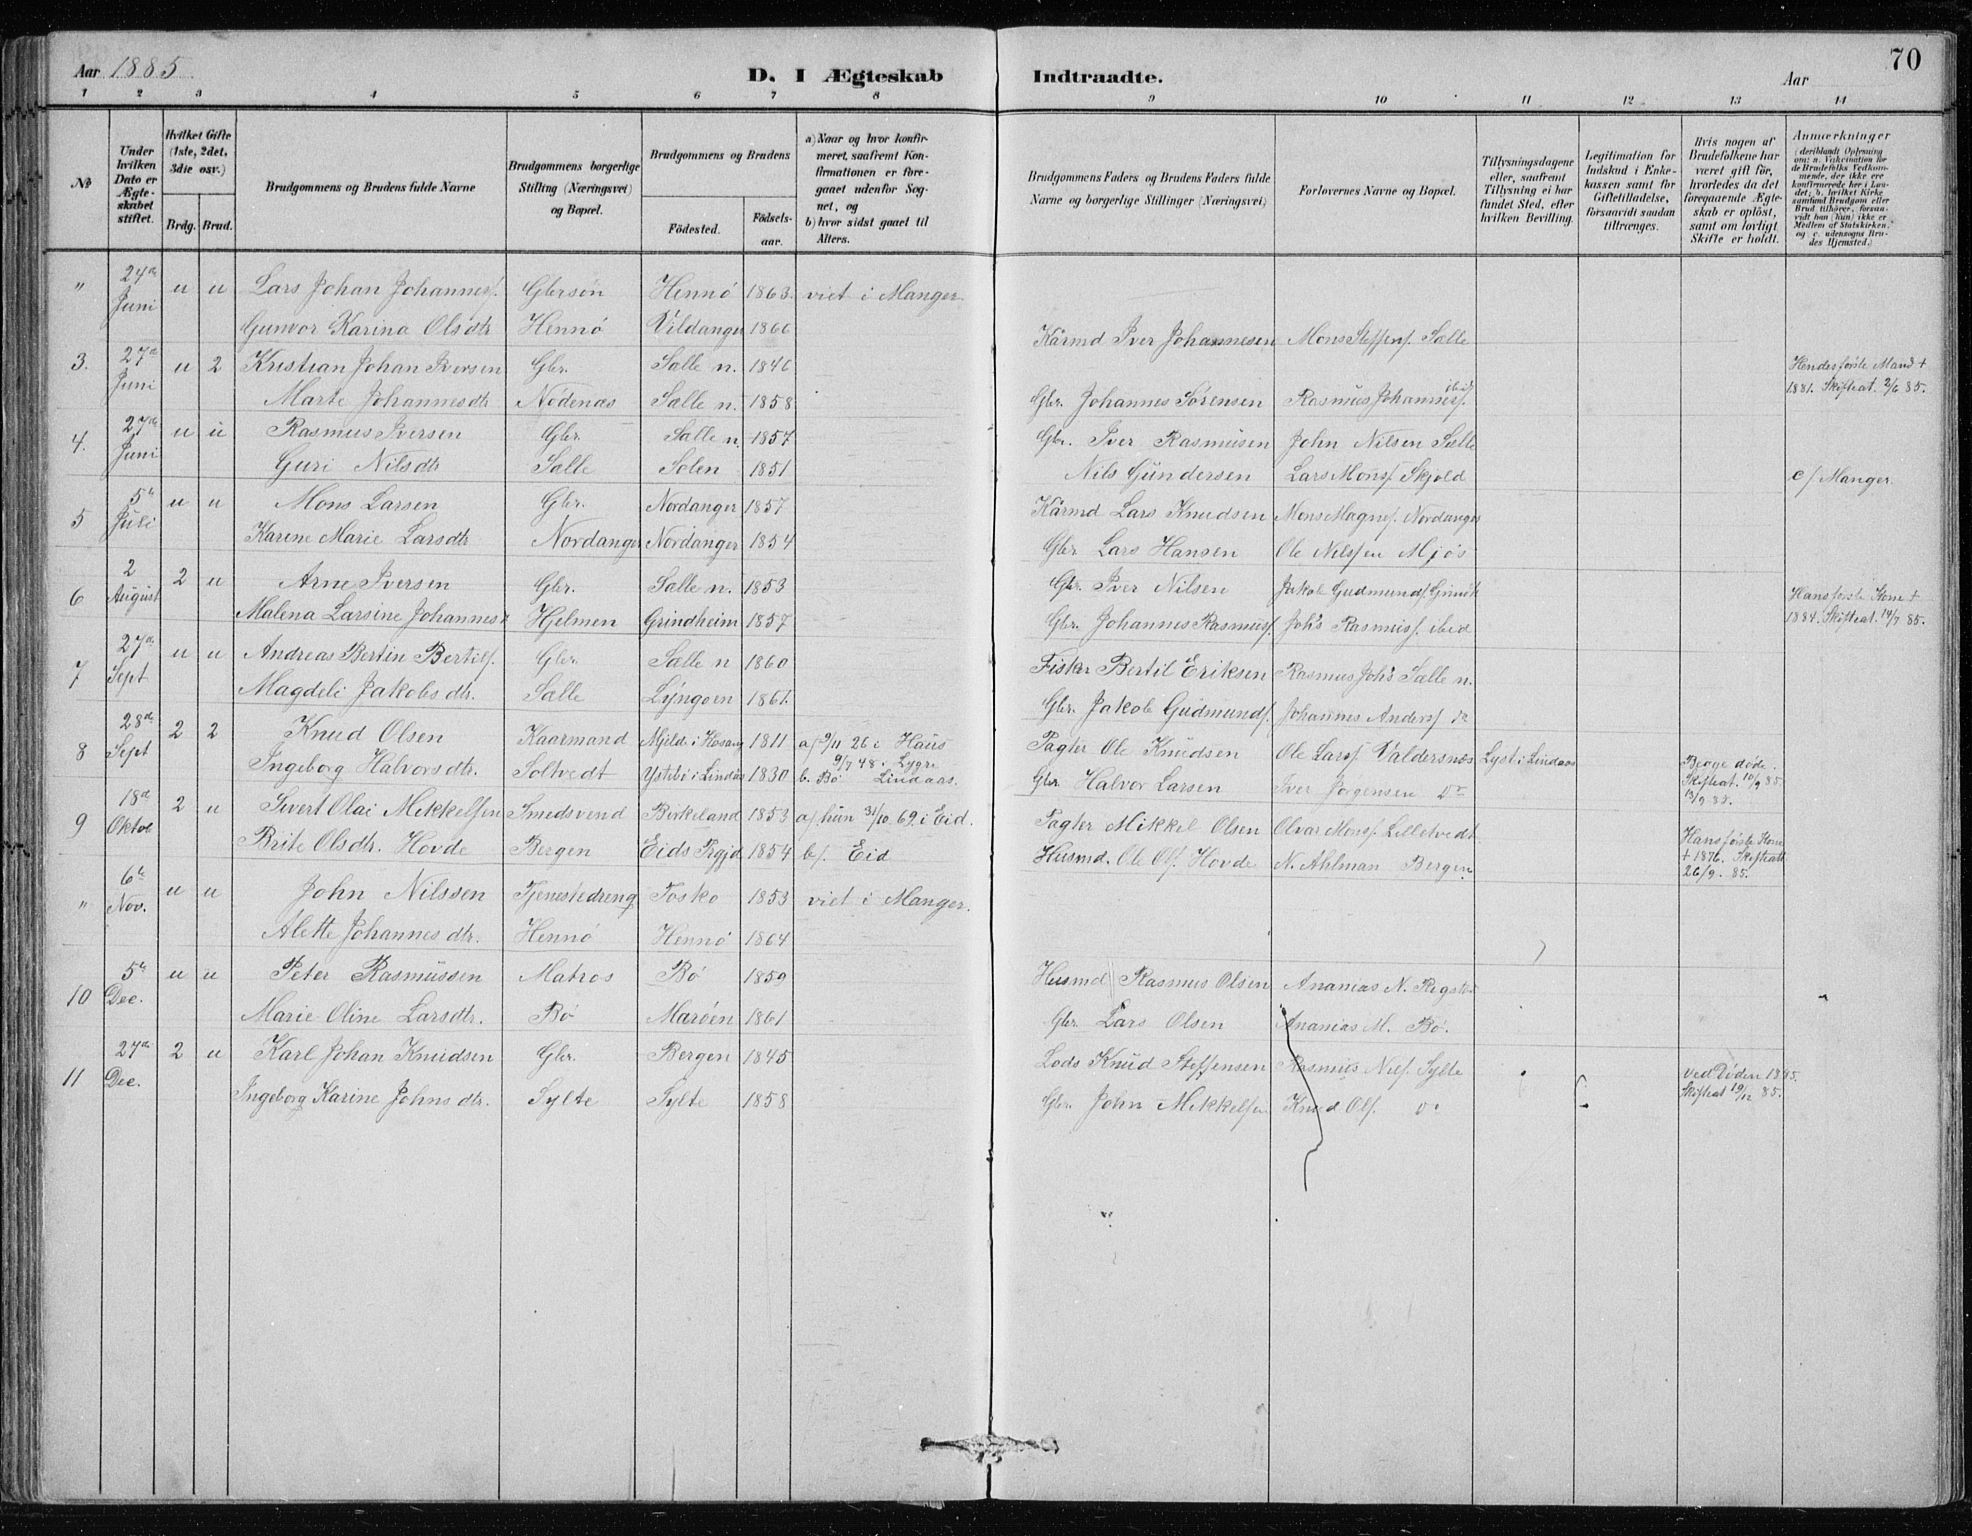 Aar 1885
D. I Ægteskab
Indtraadte.
Aar
70
1 2 3 4 5 6 7 8
9 10 11 12 13 14
№
Under hvilken Dato er Ægteskabet stiftet.
Hvilket Gifte (1ste, 2det, 3die osv.)
Brdg. Brud.
Brudgommens og Brudens fulde Navne
Brudgommens borgerlige Stilling (Næringsvei) og Bopæl.
Brudgommens og Brudens
Födested.
Födsels-aar.
a) Naar og hvor konfirmeret, saafremt Konfirmationen er foregaaet udenfor Sognet, og
b) hvor sidst gaaet til Alters.
Brudgommens Faders og Brudens Faders fulde Navne og borgerlige Stillinger (Næringsvei)
Forlovernes Navne og Bopæl.
Tillysningsdagene eller, saafremt Tillysning ei har fundet Sted, efter hvilken Bevilling.
Legitimation for Indskud i Enkekassen samt for Giftetilladelse, forsaavidt saadan tiltrænges.
Hvis nogen af Brudefolkene har været gift för, hvorledes da det foregaaende Ægteskab er oplöst, samt om lovligt Skifte er holdt.
Anmærkninger (deriblandt Oplysning om: a. Vakcination for de Brudefolks Vedkommende, der ikke ere konfirmerede her i Landet; b. hvilket Kirkesamfund Brudgom eller Brud tilhörer, forsaavidt han (hun) ikke er Medlem af Statskirken, og c. udensogns Brudes Hjemsted.)
" 24de Juni u u Lars Johan Johanness. Gbrsön Hennö 1863 viet i Manger
Gunvor Karina Olsdtr Hennö Vildanger 1860
3. 27de Juni u 2 Kristian Johan Iversen Gbr. Sælle n. 1846 Kårmd Iver Johannesen Mons Steffens. Sælle
Hendes förste Mand + 1881. Skifteat. 2/6 85.
Marte Johannesdtr Nödenæs Sælle n. 1858 Gbr. Johannes Sörensen Rasmus Johanness. ibid
4. 27de Juni u u Rasmus Iversen Gbr. Sælle n 1857 Gbr. Iver Rasmusen John Nilsen Sælle
Guri Nilsdtr Sælle Solen 1851 Nils Gundersen Lars Mons. Skjold c/ Manger
5 5te Juli u u Mons Larsen Gbr. Nordanger 1857 Kårmd Lars Knudsen Mons Magnes. Nordanger
Karine Marie Larsdtr Nordanger Nordanger 1854 Gbr Lars Hansen Ole Nilssen Mjös
6 2 August 2 u Arne Iversen Gbr. Sælle n. 1853 Gbr. Iver Nilsen Jakob Gudmunds.
Hans förste Kone + 1884. Skifteat. 14/7 85.
Malena Larsine Johannesd Hjelmen Grindheim 1857 Gbr. Johannes Rasmuss. Johs Rasmuss. ibid
7 27de Sept u u Andreas Bertin Bertils. Gbr. Sælle n 1860 Fisker Bertil Eriksen Rasmus Johs Sælle n.
Magdeli Jakobsdtr. Sælle Lyngoen 1861. Gbr. Jakob Gudmunds. Johannes Anders. do
8 28de Sept 2 2 Knud Olsen Kaarmand Mjeld i Hosang 1811 a/ 9/11 26 i Haus Pagter Ole Knudsen Ole Larss. Valdersnæs Lyst i Lindaas
9/7 48. Lygre
Begge döde. Skifteat. 10/9 85. 13/9 85.
Ingeborg Halvorsdtr. Soltvedt Ystebö i Lindaas 1830 b. Bö Lindaas. Gbr Halvor Larsen Iver Jörgensen do
9 18de Oktob 2 u Sivert Olai Mikkelsen Smedsvend Birkeland 1853 a/ hun 31/10 69. i Eid. Pagter Mikkel Olsen Olvar Mons. Lilletvedt
Hans förste Kone + 1876. Skifteatt 26/9. 85.
Brite Olsdtr. Hovde Bergen Eids Prgjd 1854 b/. Eid Husmd. Ole Ols. Hovde N. Ahlman Bergen
" 6te Nov. u u John Nilssen Tjenestedreng Fosko 1853 viet i Manger.
Alette Johannesdtr. Hennö Hennö 1864
10 5te Dec. u u Peter Rasmussen Matros Bö 1859 Husmd Rasmus Olsen Ananias N.
Marie Oline Larsdtr. Bö Maröen 1861 Gbr. Lars Olsen Ananias M. Bö.
11 27de Dec. 2 u Karl Johan Knudsen Gbr. Bergen 1845 Lods Knud Steffensen Rasmus Nils. Sylte
ved Döden 1885. Skifteat 19/12 85.
Ingeborg Karine Johnsdtr. Sylte Sylte 1858 Gbr. John Mikkelsen Knud Ols. do